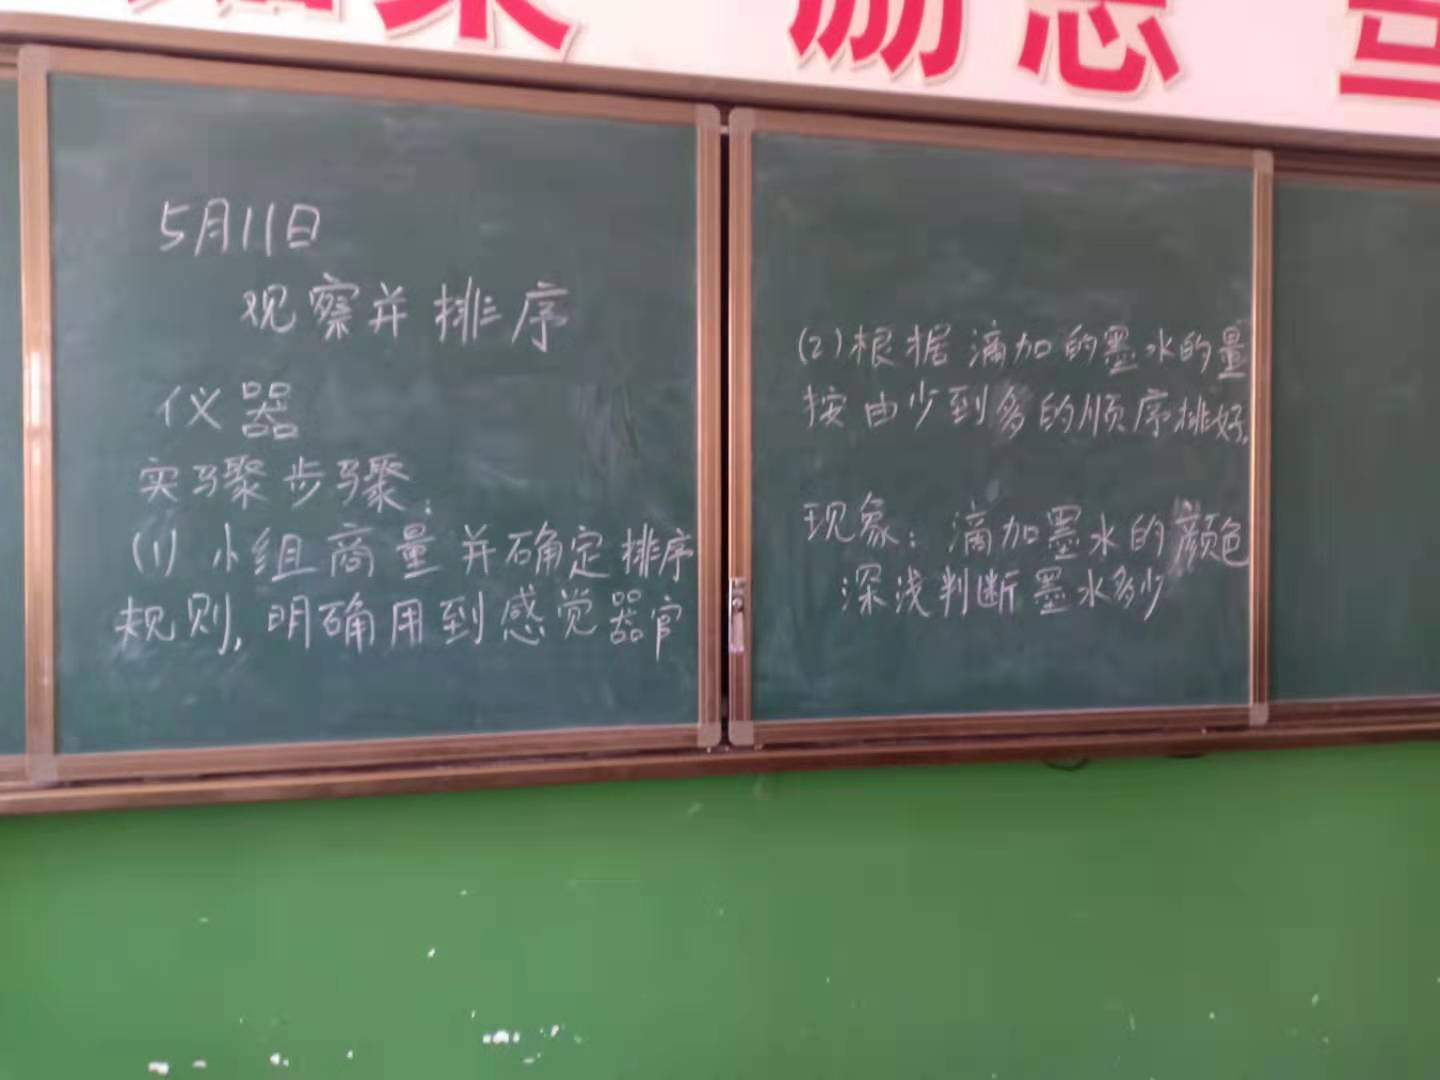 励志
5月11日
观察并排序
仪器
实骤步骤:
(1)小组商量并确定排序
规则,明确用到感觉器官
(2)根据滴加的墨水的量
按由少到多的顺序排好.
现象:滴加墨水的颜色
深浅判断墨水多少